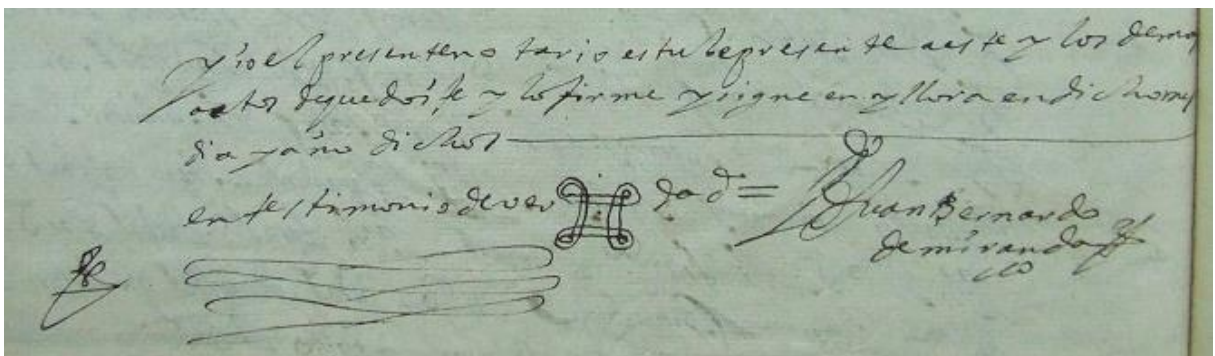 y io el presente notario estube presente a este y los demas
autos de que doi fe y lo firme y signe en yllora en dicho mes
dia y año dichos
en testimonio de ver dad =
Juan Bernardo
de miranda